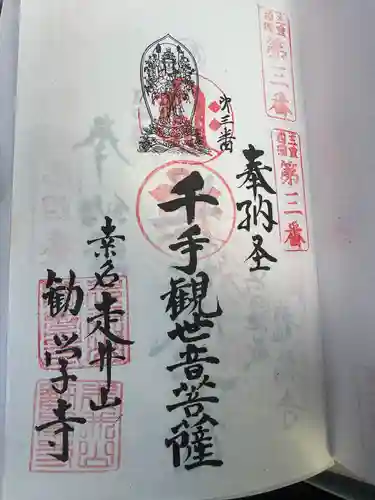 第三番
第三番
奉納圣
第三番
千手観世音菩薩
桑名走井山
勧学寺